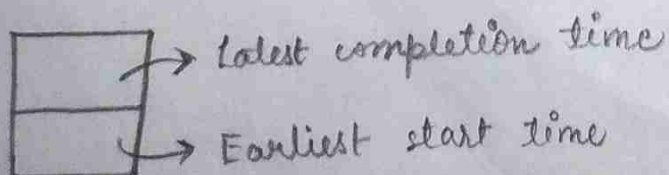 Latest completion time
Earliest start time